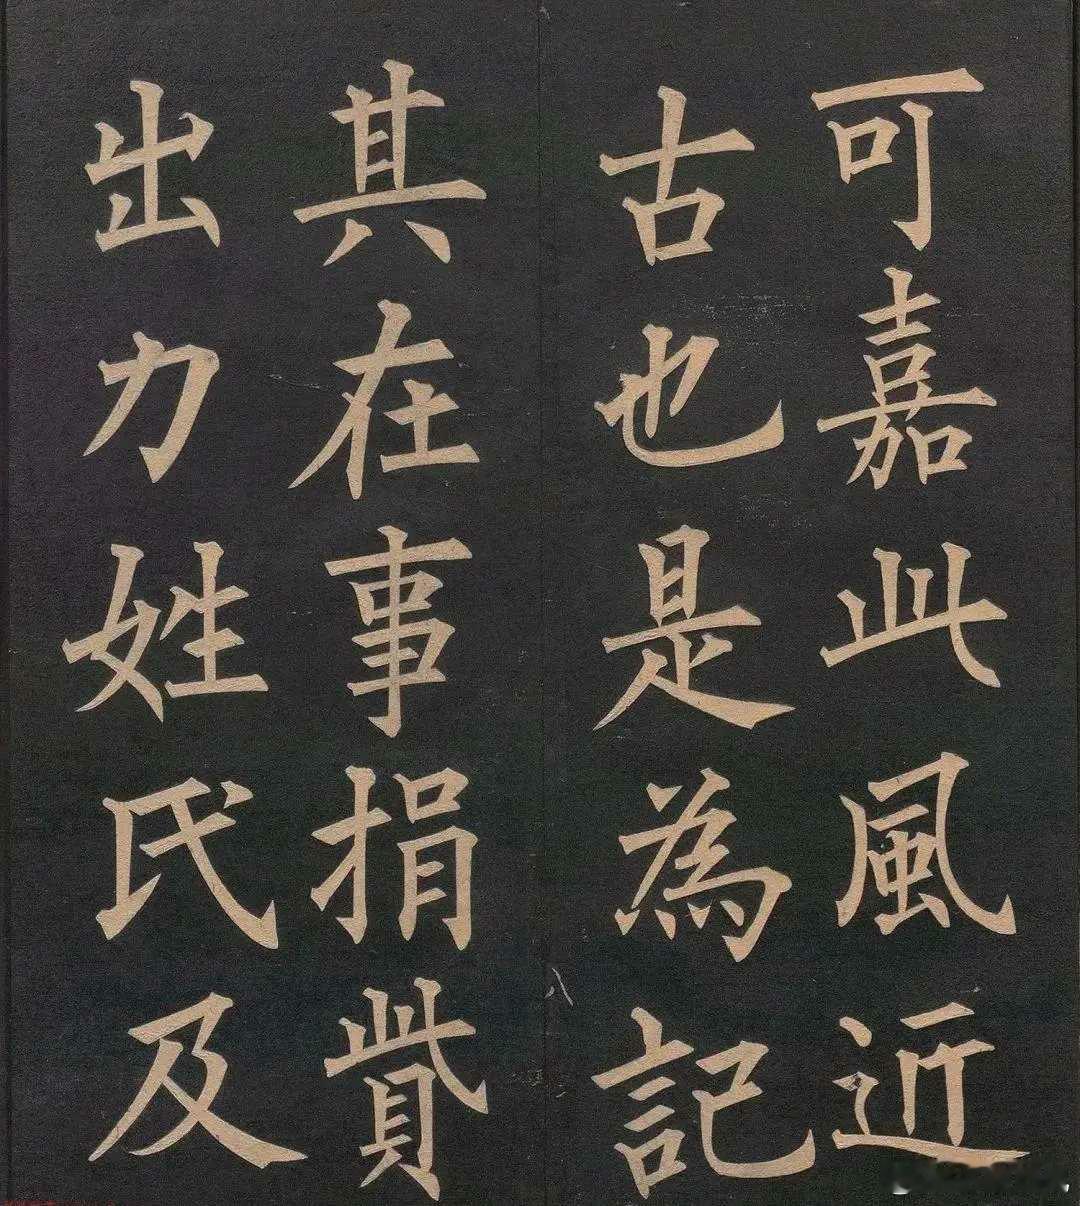 可嘉此風近
古也是為記
其在事捐貲
出力姓氏及